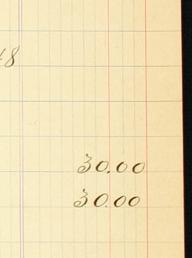 48
30.00
30.00